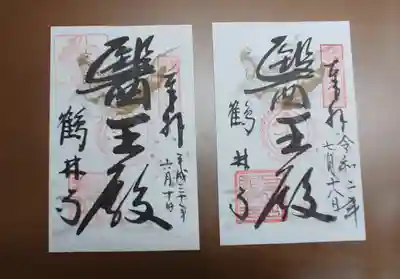 奉拝
六月十日
醫王殿
鶴林寺
奉拝
令和二年
七月十八日
醫王殿
鶴林寺